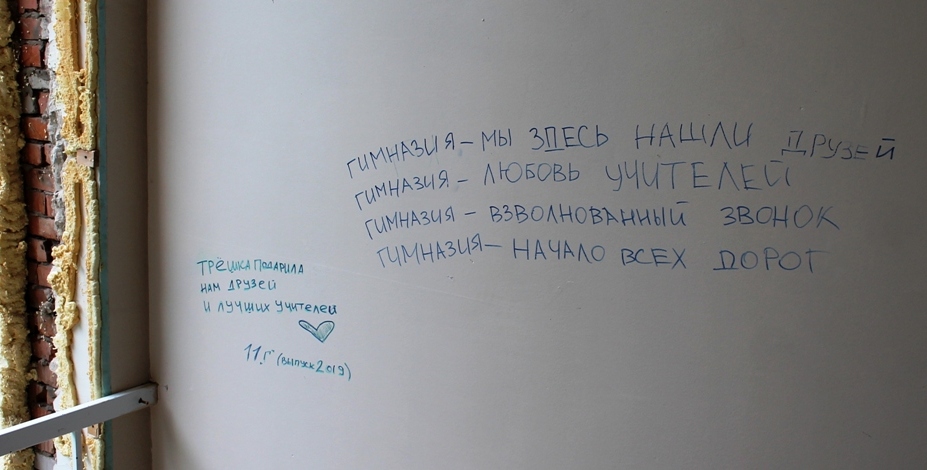 ГИМНАЗИЯ – МЫ ЗДЕСЬ НАШЛИ ДРУЗЕЙ
ГИМНАЗИЯ – ЛЮБОВЬ УЧИТЕЛЕЙ
ГИМНАЗИЯ – ВЗВОЛНОВАННЫЙ ЗВОНОК
ГИМНАЗИЯ – НАЧАЛО ВСЕХ ДОРОГ
ТРЁШКА ПОДАРИЛА
НАМ ДРУЗЕЙ
И ЛУЧШИХ УЧИТЕЛЕЙ
11.Г (ВЫПУСК 2019)